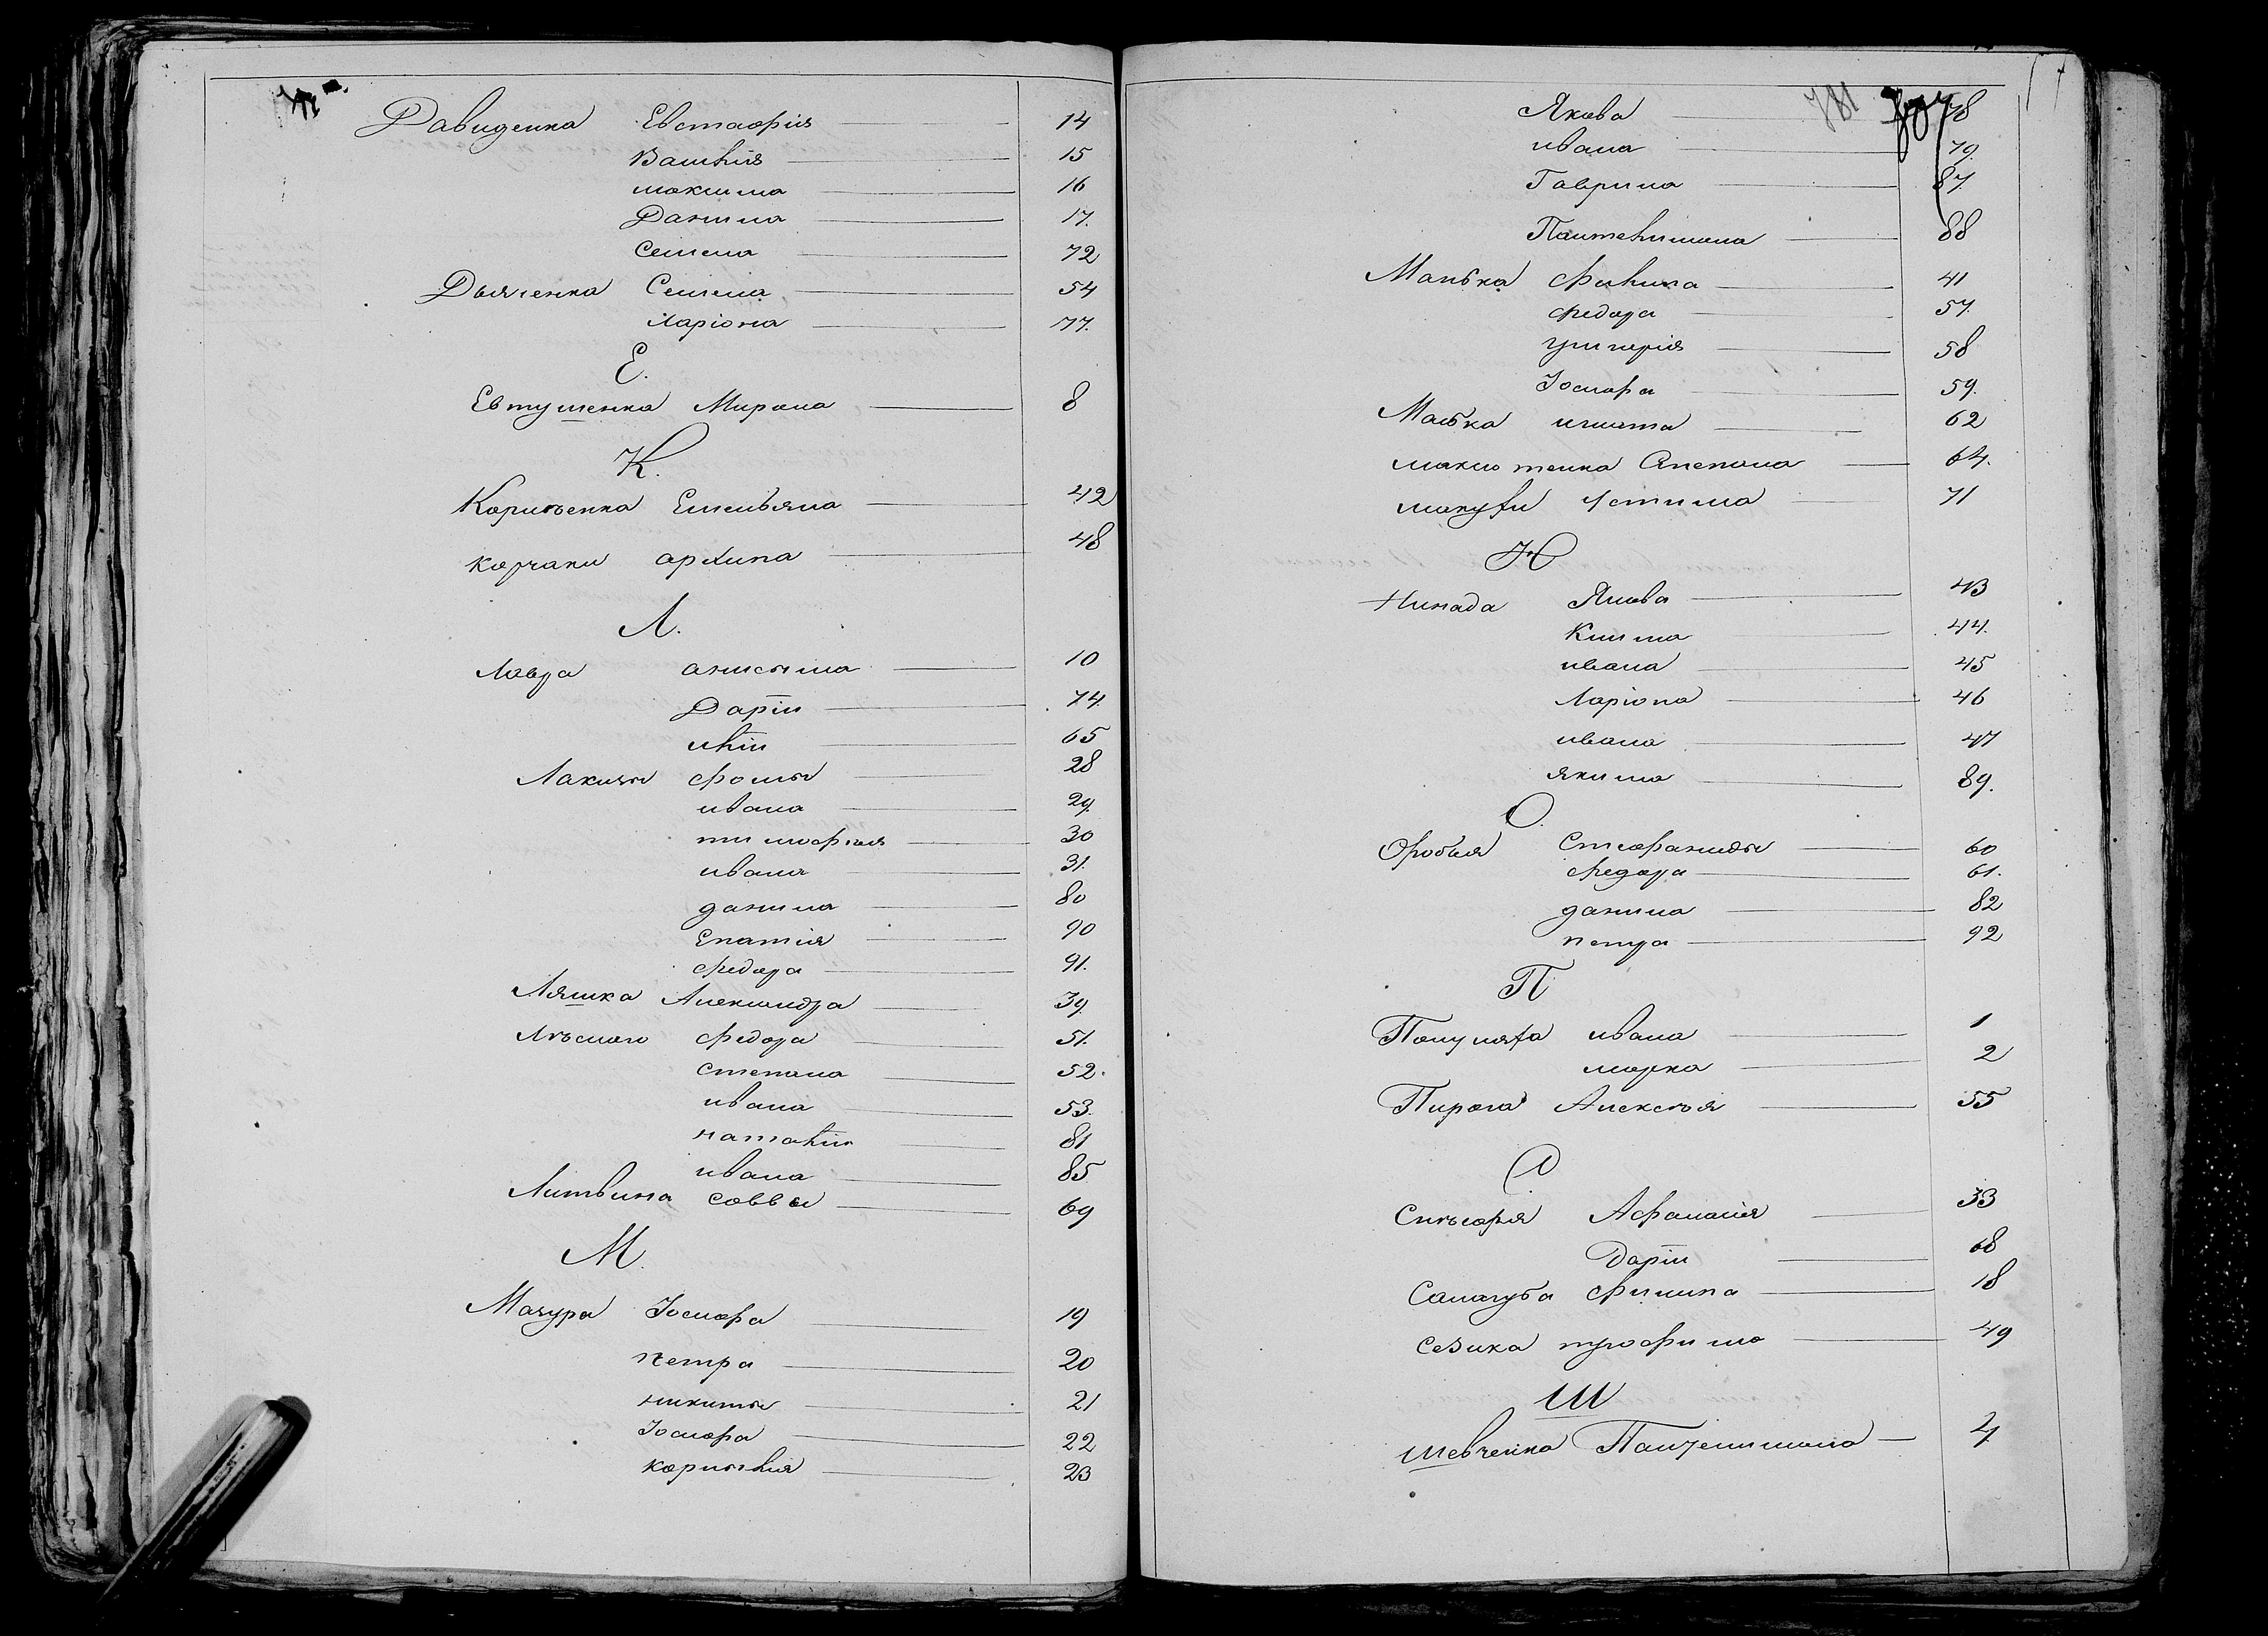 Давиденка Евстафія 14
Василія 15
максима 16
Данила 17.
Семена 72
Дьяченка Семена 54
Ларіона 77.
Е.
Евтушенка Мирона 8
К.
Корниенка Емельяна 42
Корчаки архипа 48
Л.
Лавра анисима 10
Даріи 74.
65
фомы 28
ивана 29.
тимофея 30
ивана 31.
данила 80
Епатія 90
федора 91.
Ляшка Александра 39.
Лѣсного федора 51.
степана 52.
ивана 53.
наталіи 81
ивана 85
Литвина саввы 69
М.
Мачура Іосифа 19
петра 20
никиты 21
Іосифа 22
корнилія 23
781 807
Якова 78
ивана 79.
Гаврила 87.
Пантелимона 88
Манька филипа 41
федора 57.
григорія 58
Іосифа 59.
Манька игната 62
Степана 64.
Устима 71
Н
Нинада Якова 43
Клима 44.
ивана 45
Ларіона 46
ивана 47
якима 89.
О.
Оробья Стефаниды 60
федора 61.
данила 82
петра 92
П
ивана 1
марка 2
Пирога Алексѣя 55
С
Снѣгоря Афанасія 33
Даріи 68
Салогуба филипа 18
трофима 49
Ш
Шевченка Пантелимона 4